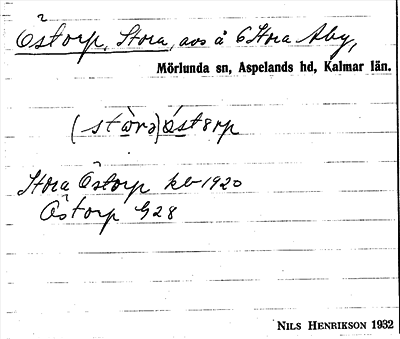 Östorp, Stora, avs å 6 Stora Åby,
Mörlunda sn, Aspelands hd, Kalmar län.
(stòrə) ó̤storp
Stora Östorp kb 1920
Östorp G28
NILS HENRIKSON 1932